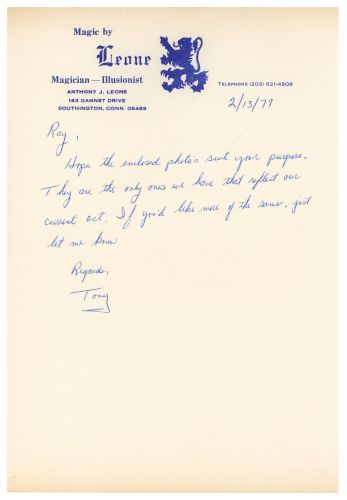 Magic by
Leone
Magician—Illusionist
ANTHONY J. LEONE
163 GANNET DRIVE
SOUTHINGTON, CONN. 06489
TELEPHONE (203) 621-4508
2/13/79
Ray,
Hope the enclosed photo's suit your purpose.
They are the only ones we have that reflect our
current act. If you'd like more of the same, just
let me know
Regards,
Tony